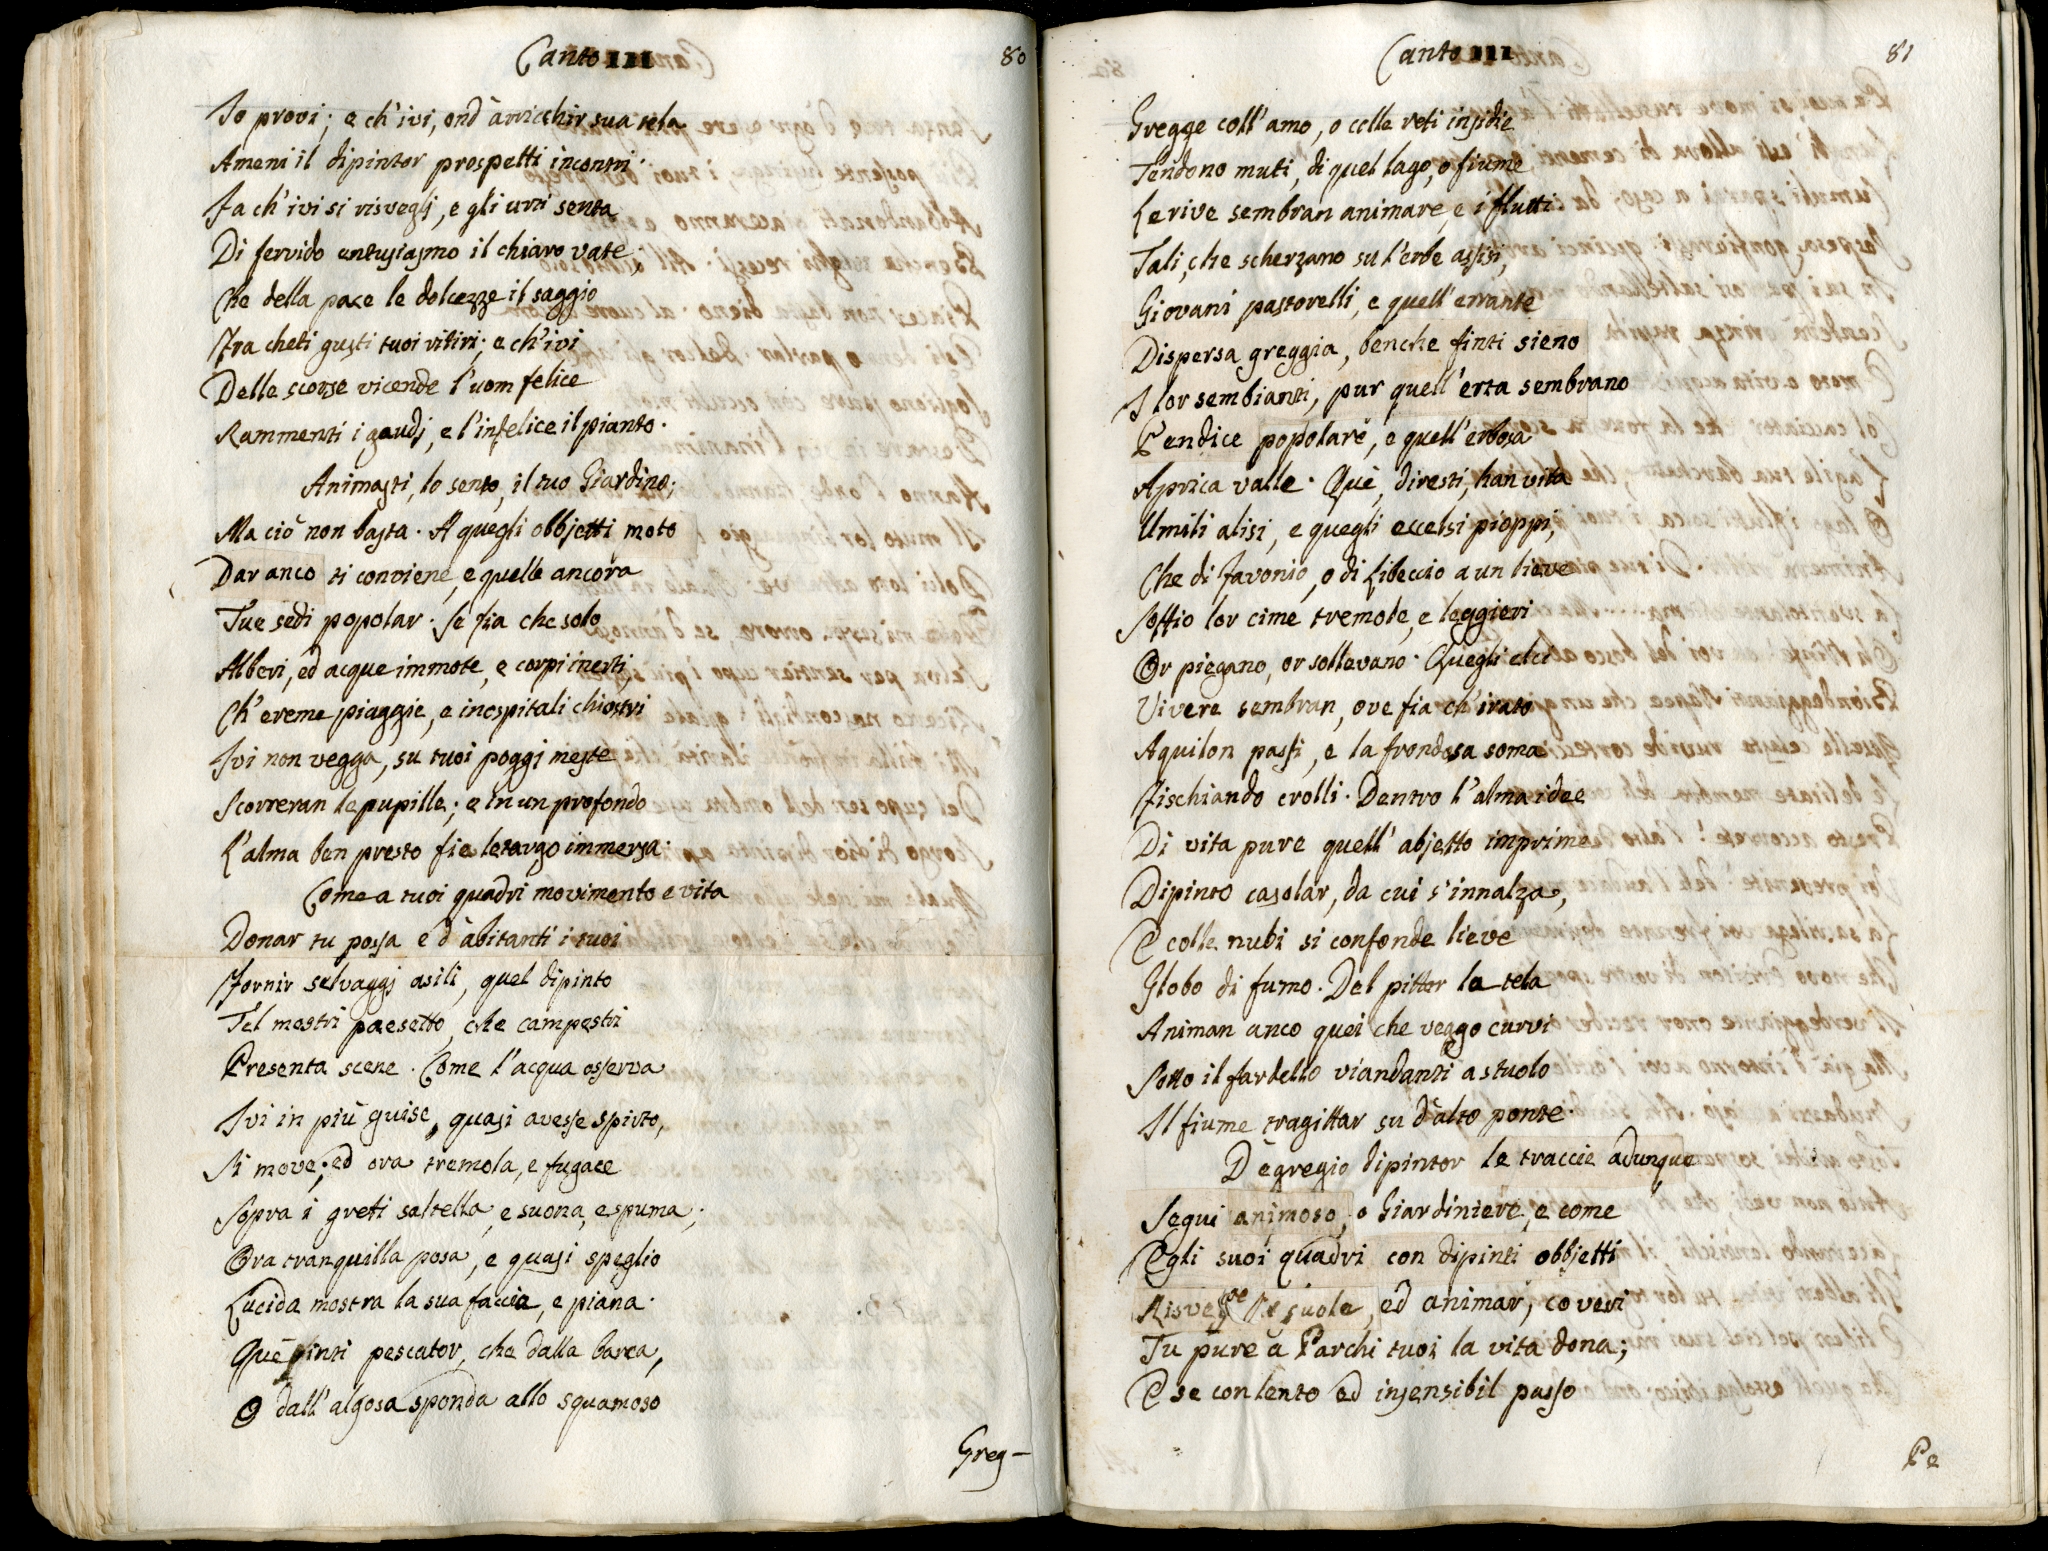 Canto III
80
Io provi; e ch'ivi, ond'arricchir sua tela
Ameni il dipintor prospetti incontri.
Fa ch'ivi si risveglj, e gli urti senta
Di fervido entusiasmo il chiaro vate.
Che della pace le dolcezze il saggio
Fra cheti gusti tuoi ritiri; e ch'ivi
Delle scorse vicende l'uom felice
Rammenti i gaudj, e l'infelice il pianto.
Animasti, lo sento, il tuo Giardino;
Ma ciò non basta. A quegli obbjetti moto
Dar anco ti conviene, e quelle ancora
Tue sedi popolar. Se fia che solo
Alberi, ed acque immote, e corpi inerti,
Ch'ereme piaggie, e inospitali chiostri
Ivi non vegga, su tuoi poggi meste
Scorreran le pupille; e in un profondo
L'alma ben presto fie letargo immersa.
Come a tuoi quadri movimento e vita
Donar tu possa e d'abitanti i tuoi
Fornir selvaggj asili, quel dipinto
Tel mostri paesetto, che campestri
Presenta scene. Come l'acqua osserva
Ivi in più guise, quasi avesse spirto,
Si move; ed ora tremola, e fugace
Sopra i greti saltella, e suona, e spuma;
Ora tranquilla posa, e quasi speglio
Lucida mostra la sua faccia, e piana.
Que' finti pescator, che dalla barca,
O dall'algosa sponda allo squamoso
Greg-
Canto III
81
Gregge coll'amo, o colle reti insidie
Tendono muti, di quel lago, o fiume
Le rive sembran animare, e i flutti.
Tali, che scherzano su l'erbe assisi,
Giovani pastorelli, e quell'errante
Dispersa greggia, benche finti sieno
I lor sembianti, pur quell'erta sembrano
Pendice popolare, e quell'erbosa
Aprica valle. Que', diresti, han vita
Umili alisi, e quegli eccelsi pioppi,
Che di Favonio, o di Libeccio a un lieve
Soffio lor cime tremole, e leggieri
Or piegano, or sollevano. Quegli elci
Vivere sembran, ove fia ch'irato
Aquilon passi, e la frondosa soma
Fischiando crolli. Dentro l'alma idee
Di vita pure quell'abjetto imprime
Dipinto casolar, da cui s'innalza,
E colle nubi si confonde lieve
Globo di fumo. Del pittor la tela
Animan anco quei che veggo curvi
Sotto il fardello viandanti a stuolo
Il fiume tragittar su d'alto ponte.
D'egregio dipintor le traccie adunque
Segui animoso, o Giardiniere, e come
Egli suoi quadri con dipinti obbjetti
suole, ed animar, co veri
Tu pure a Parchi tuoi la vita dona;
E se con lento ed insensibil passo
Pe